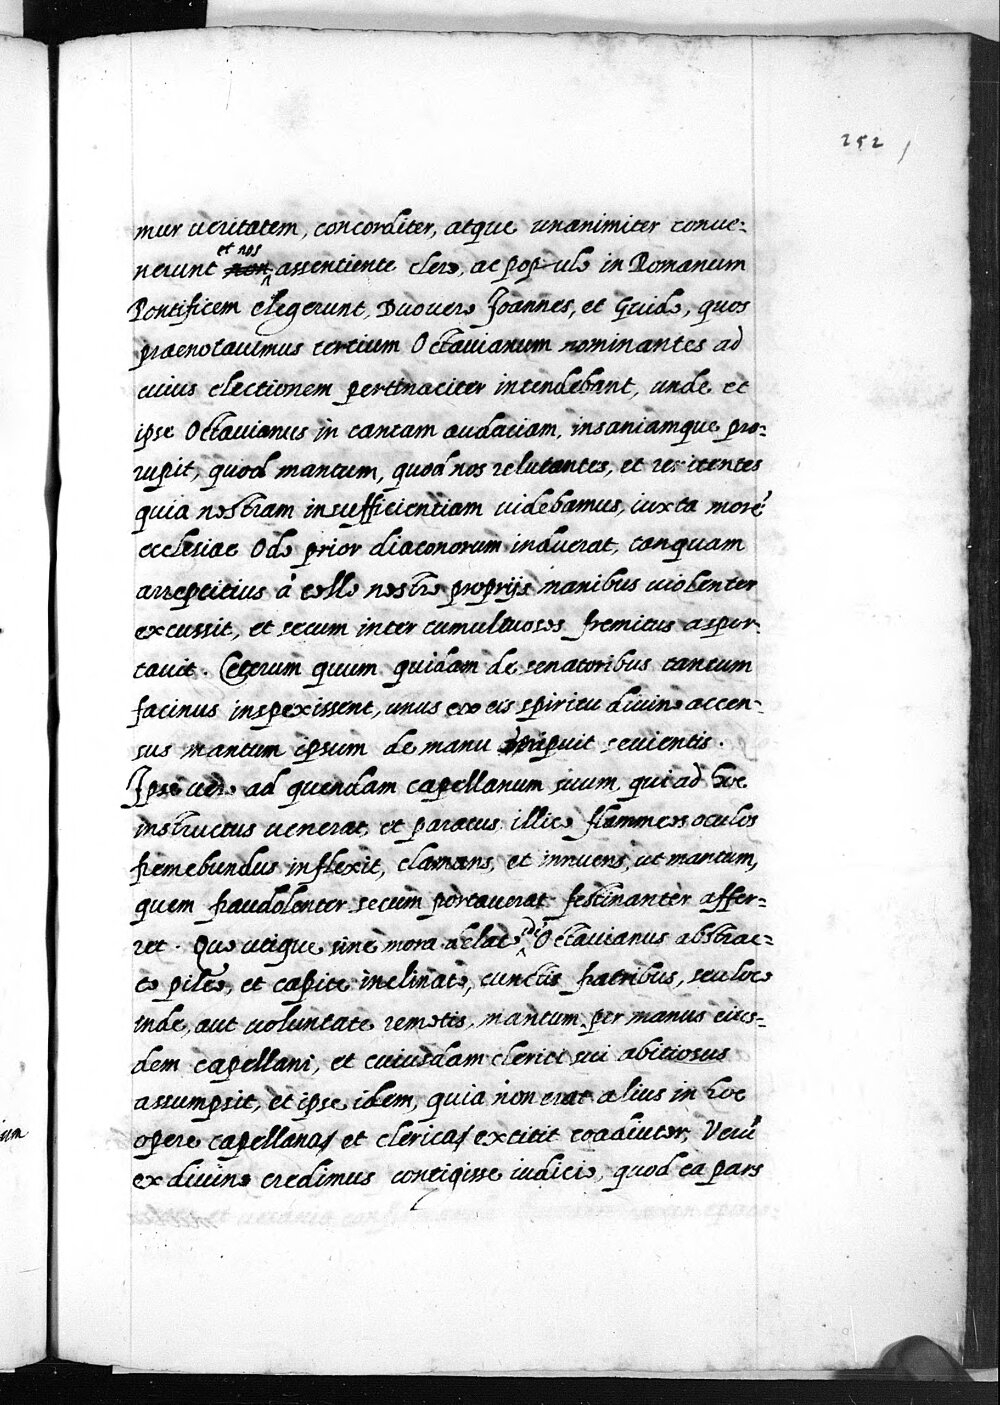 252
mur ueritatem, concorditer, atque unanimiter conue-
nerunt et nos assentiente clero, ac populo in Romanum
Pontificem elegerunt, Duo uero Joannes, et Guido, quos
praenotauimus tertium Octauianum nominantes ad
cuius electionem pertinaciter intendebant, unde et
ipse Octauianus in tantam audaciam, insaniamque pro-
rupit, quod mantum, quod nos relutantes, et renitentes
quia nostram insufficientiam uidebamus, iuxta morē
ecclesiae Odo prior diaconorum induerat, tanquam
arreptitius à collo nostro proprijs manibus uiolenter
excussit, et secum inter tumultuosos fremitus aspor-
tauit. Ceterum quum quidam de senatoribus tantum
facinus inspexissent, unus ex eis spiritu diuino accen-
sus mantum ipsum de manu eripuit seuientis.
Ipse uero ad quendam capellanum suum, qui ad hoc
instructus uenerat, et paratus illico flammeos oculos
fremebundus inflexit, clamans, et innuens, ut mantum,
quem fraudolenter secum portauerat festinanter affer-
ret. Quo utique sine mora delato Octauianus abstrac-
to pileo, et capite inclinato, cunctis fratribus, seu loco
inde, aut uoluntate remotis, mantum per manus eius-
dem capellani, et cuiusdam clerici sui abitiosus
assumpsit, et ipse idem, quia non erat alius in hoc
opere capellanus et clericus extitit coadiutor, Verū
ex diuino credimus contigisse iudicio, quod ea pars